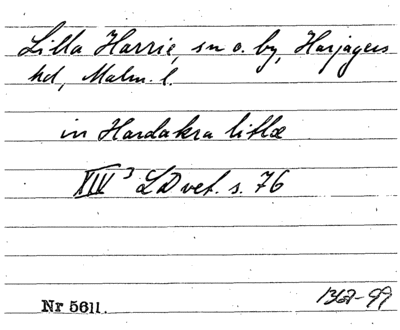 Lilla Harrie, sn o. by, Harjagers
hd, Malm. l.
in Hardakra litlæ
XIV 3 LD vet. s. 76
Nr 5611. 1367-99